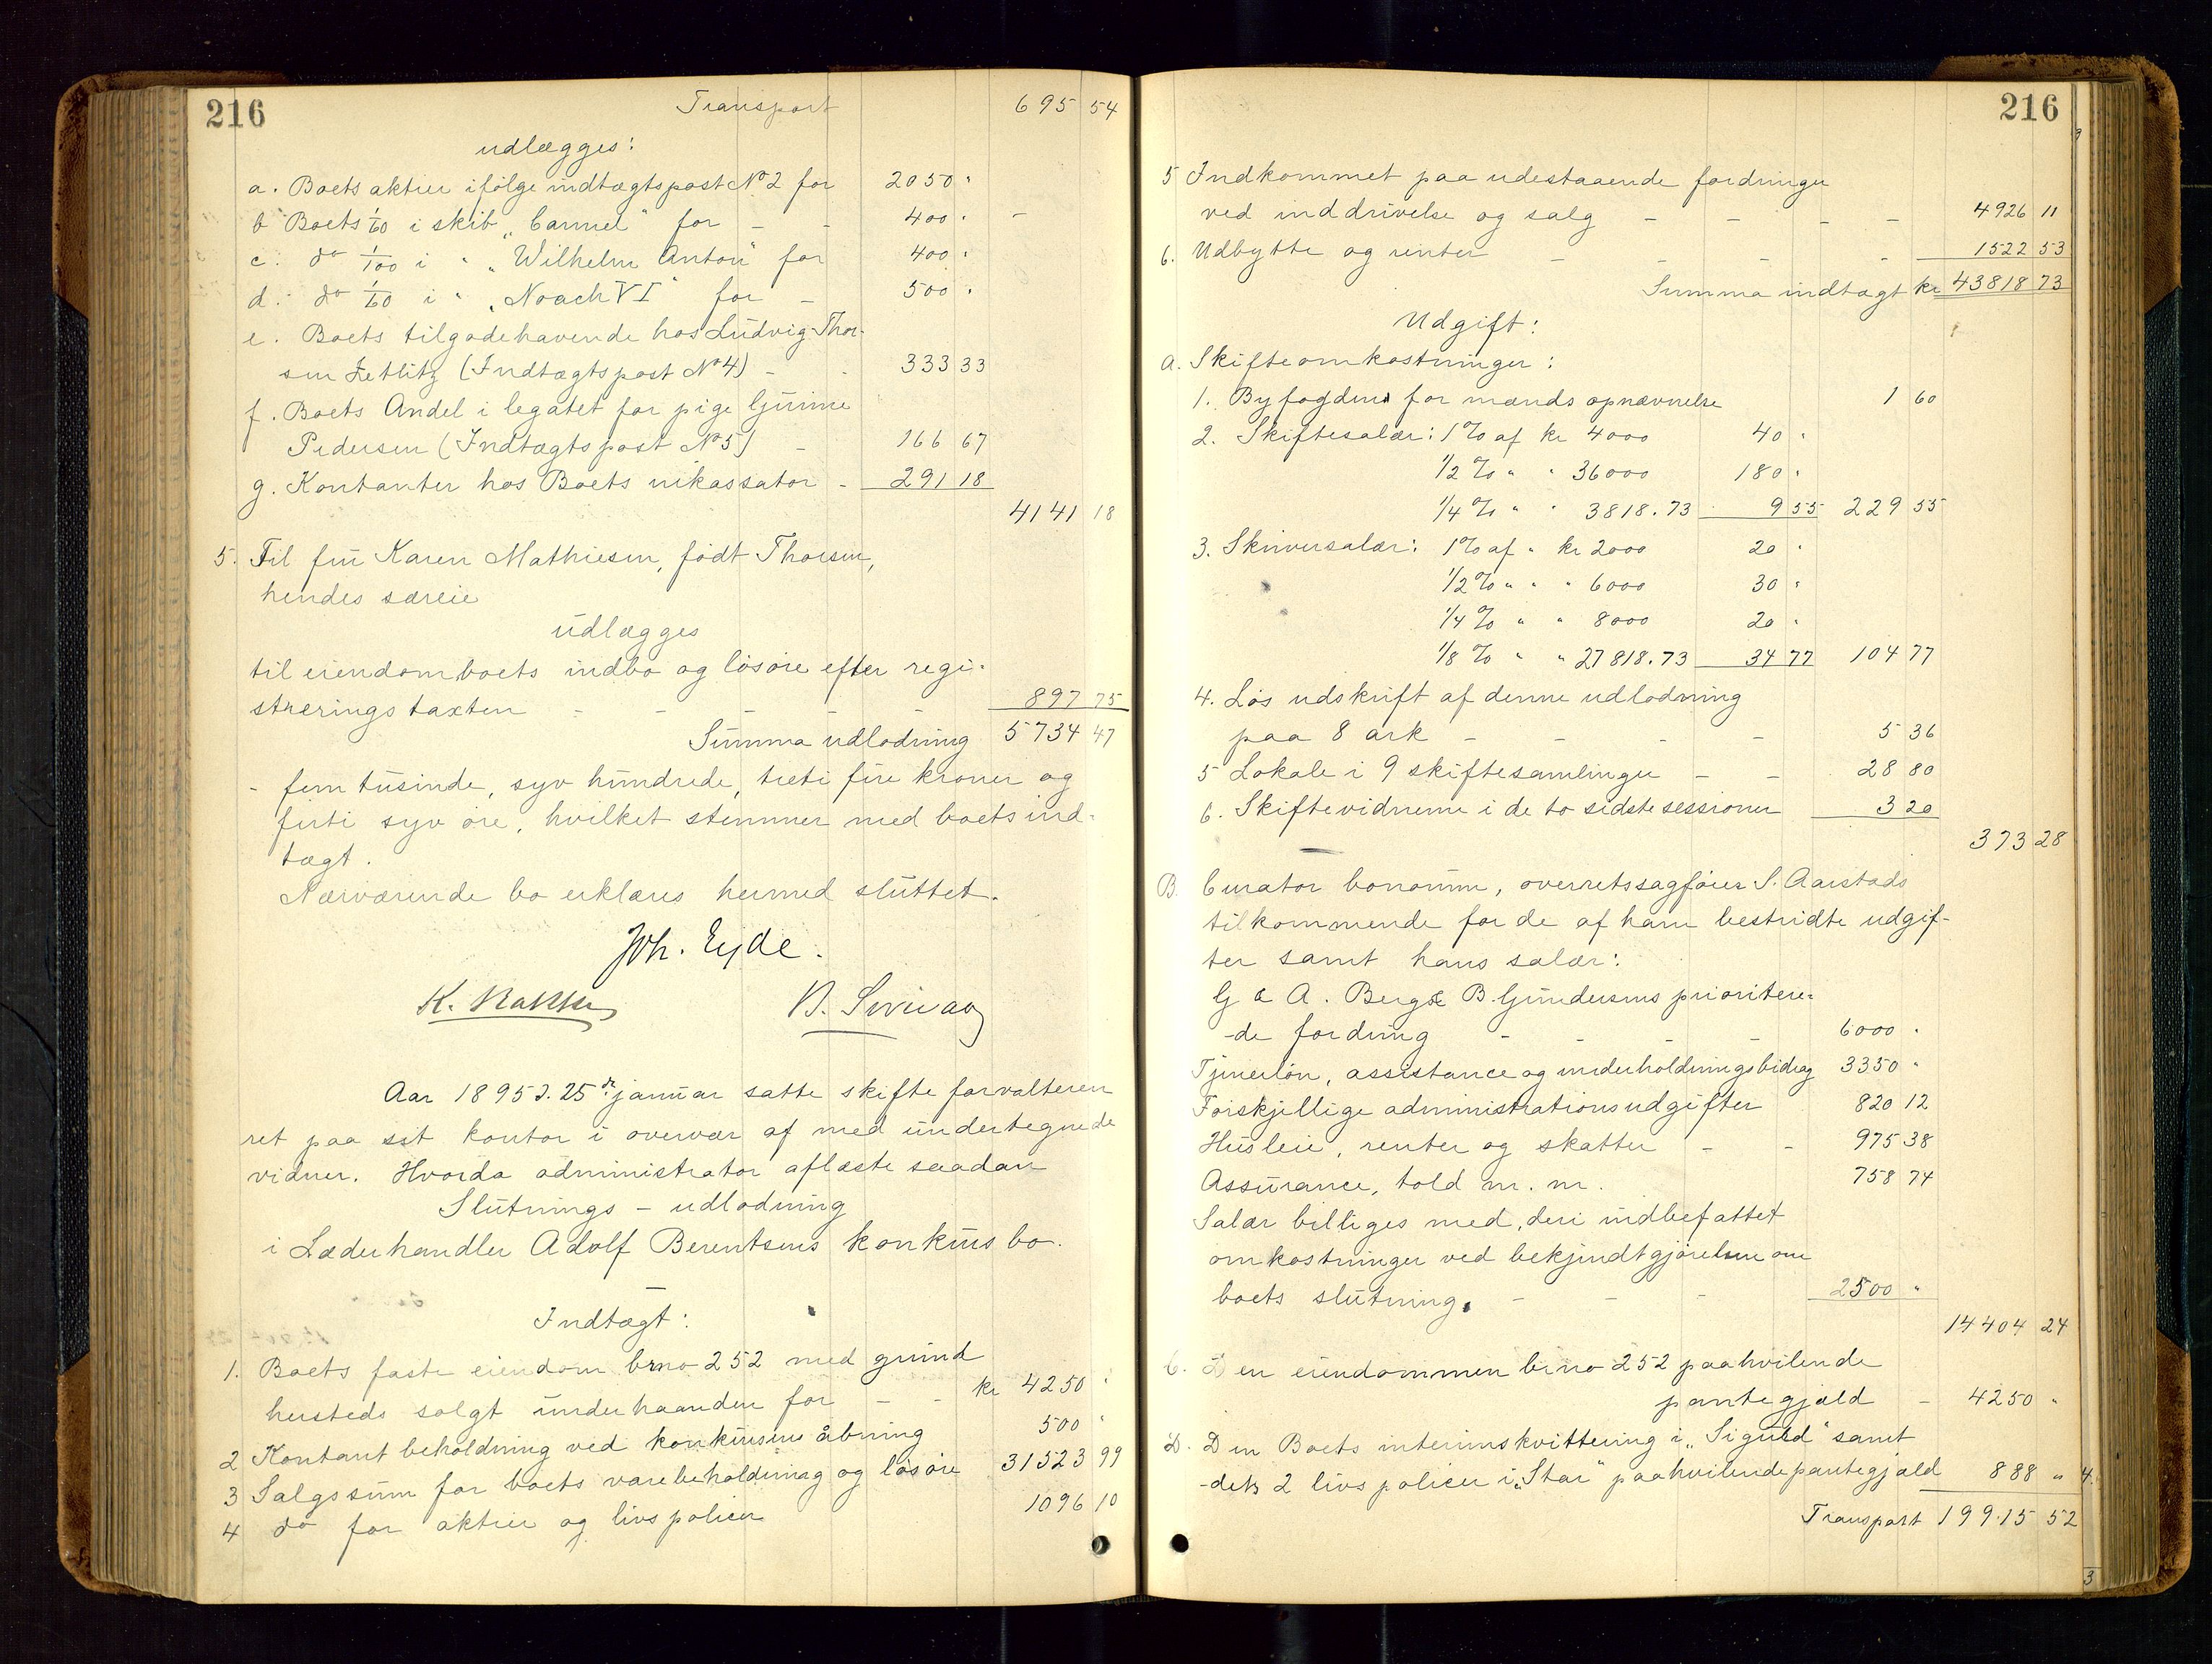 216
Transport 695 54
udlægges:
a. Boets aktier ifölge indtægtspost No 2 for 2050 "
b Boets 1/60 i skib "Carmel" for - - 400 " -
c. do 1/100 i " "Wilhelm Anton" for 400 "
d. do 1/60 i " "Noach VI" for - 500 "
e. Boets tilgodehavende hos Ludvig Thor-
sen Zetlitz (Indtægtspost No 4) - - 333 33
f. Boets Andel i legatet for pige Gurine
Pedersen (Indtægtspost No 5) - 166 67
g. Kontanter hos Boets inkassator - 291 18
4141 18
5. Til fru Karen Mathiesen, født Thorsen,
hendes særeie
udlægges
til eiendom boets indbo og lösöre efter regi-
streringstaxten - - - - - 897 75
Summa udlodning 5734 47
- fem tusinde, syv hundrede, treti fire kroner og
firti syv öre, hvilket stemmer med boets ind-
tægt.
Nærværende bo erklæres hermed sluttet.
Joh. Eyde.
K. Bakke
Aar 1895 d. 25de januar satte skifteforvalteren
ret paa sit kontor i overvær af med undertegnede
vidner. Hvorda administrator aflæste saadan
Slutnings - udlodning
i Læderhandler Adolf Berentsens konkursbo.
Indtægt:
1. Boets faste eiendom brno 252 med grund
hersteds solgt underhaanden for - - kr 4250 "
2 Kontant beholdning ved konkursens åbning 500 "
3 Salgssum for boets varebeholdning og lösöre 31523 99
4 do for aktier og livspolicer 1096 10
216
5 Indkommet paa udestaaende fordringer
ved inddrivelse og salg - - - - 4926 11
6. Udbytte og renter - - - - 1522 53
Summa indtægt kr 43818 73
Udgift:
A. Skifteomkostninger:
1. Byfogdens for mænds opnævnelse 1 60
2. Skiftesalær: 1% af kr 4000 40 "
1/2 % " " 36000 180 "
1/4 % " " 3818.73 9 55 229 55
3. Skriversalær: 1% af " kr 2000 20 "
1/2 % " " " 6000 30 "
1/4 % " " 8000 20 "
1/8 % " " 27818.73 34 77 104 77
4. Lös udskrift af denne udlodning
paa 8 ark - - - - 5 36
5 Lokale i 9 skiftesamlinger - - 28 80
6. Skiftevidnerne i de to sidste sessioner 3 20
373 28
B. Curator bonorum, overretssagförer S. Aarstads
tilkommende for de af ham bestridte udgif-
ter samt hans salær:
G & A. Berg & B. Gundersens prioritere-
-de fordring - - - - 6000 "
Tjenerlön, assistance og underholdningsbidrag 3350 "
Forskjellige administrationsudgifter 820 12
Husleie, renter og skatter - - 975 38
Assurance, told m. m. 758 74
Salær billiges med, deri indbefattet
omkostninger ved bekjendtgjörelsene om
boets slutning. - - - 2500 "
14404 24
C. Den eiendommen brno 252 paahvilende
pantegjæld - 4250 "
D. Den Boets interimskvittering i "Sigurd" samt
-dets 2 livspolicer i "Star" paahvilende pantegjæld 888 " 4.
Transport 19915 52
3